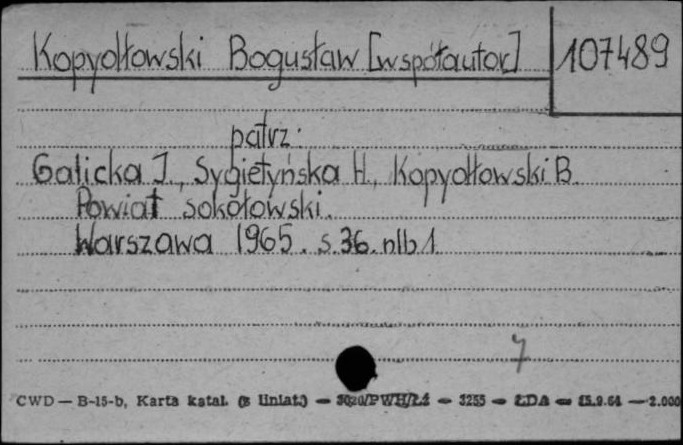 Kopyołtowski Bogusław [współautor] 107489
patrz:
Galicka I., Sygietyńska H., Kopyołtowski B.
Powiat sokołowski.
Warszawa 1965. s. 36. nlb 1
7
CWD — B-15-b, Karta katal. (z liniat.) — 3255 — ŁDA — — 2.000